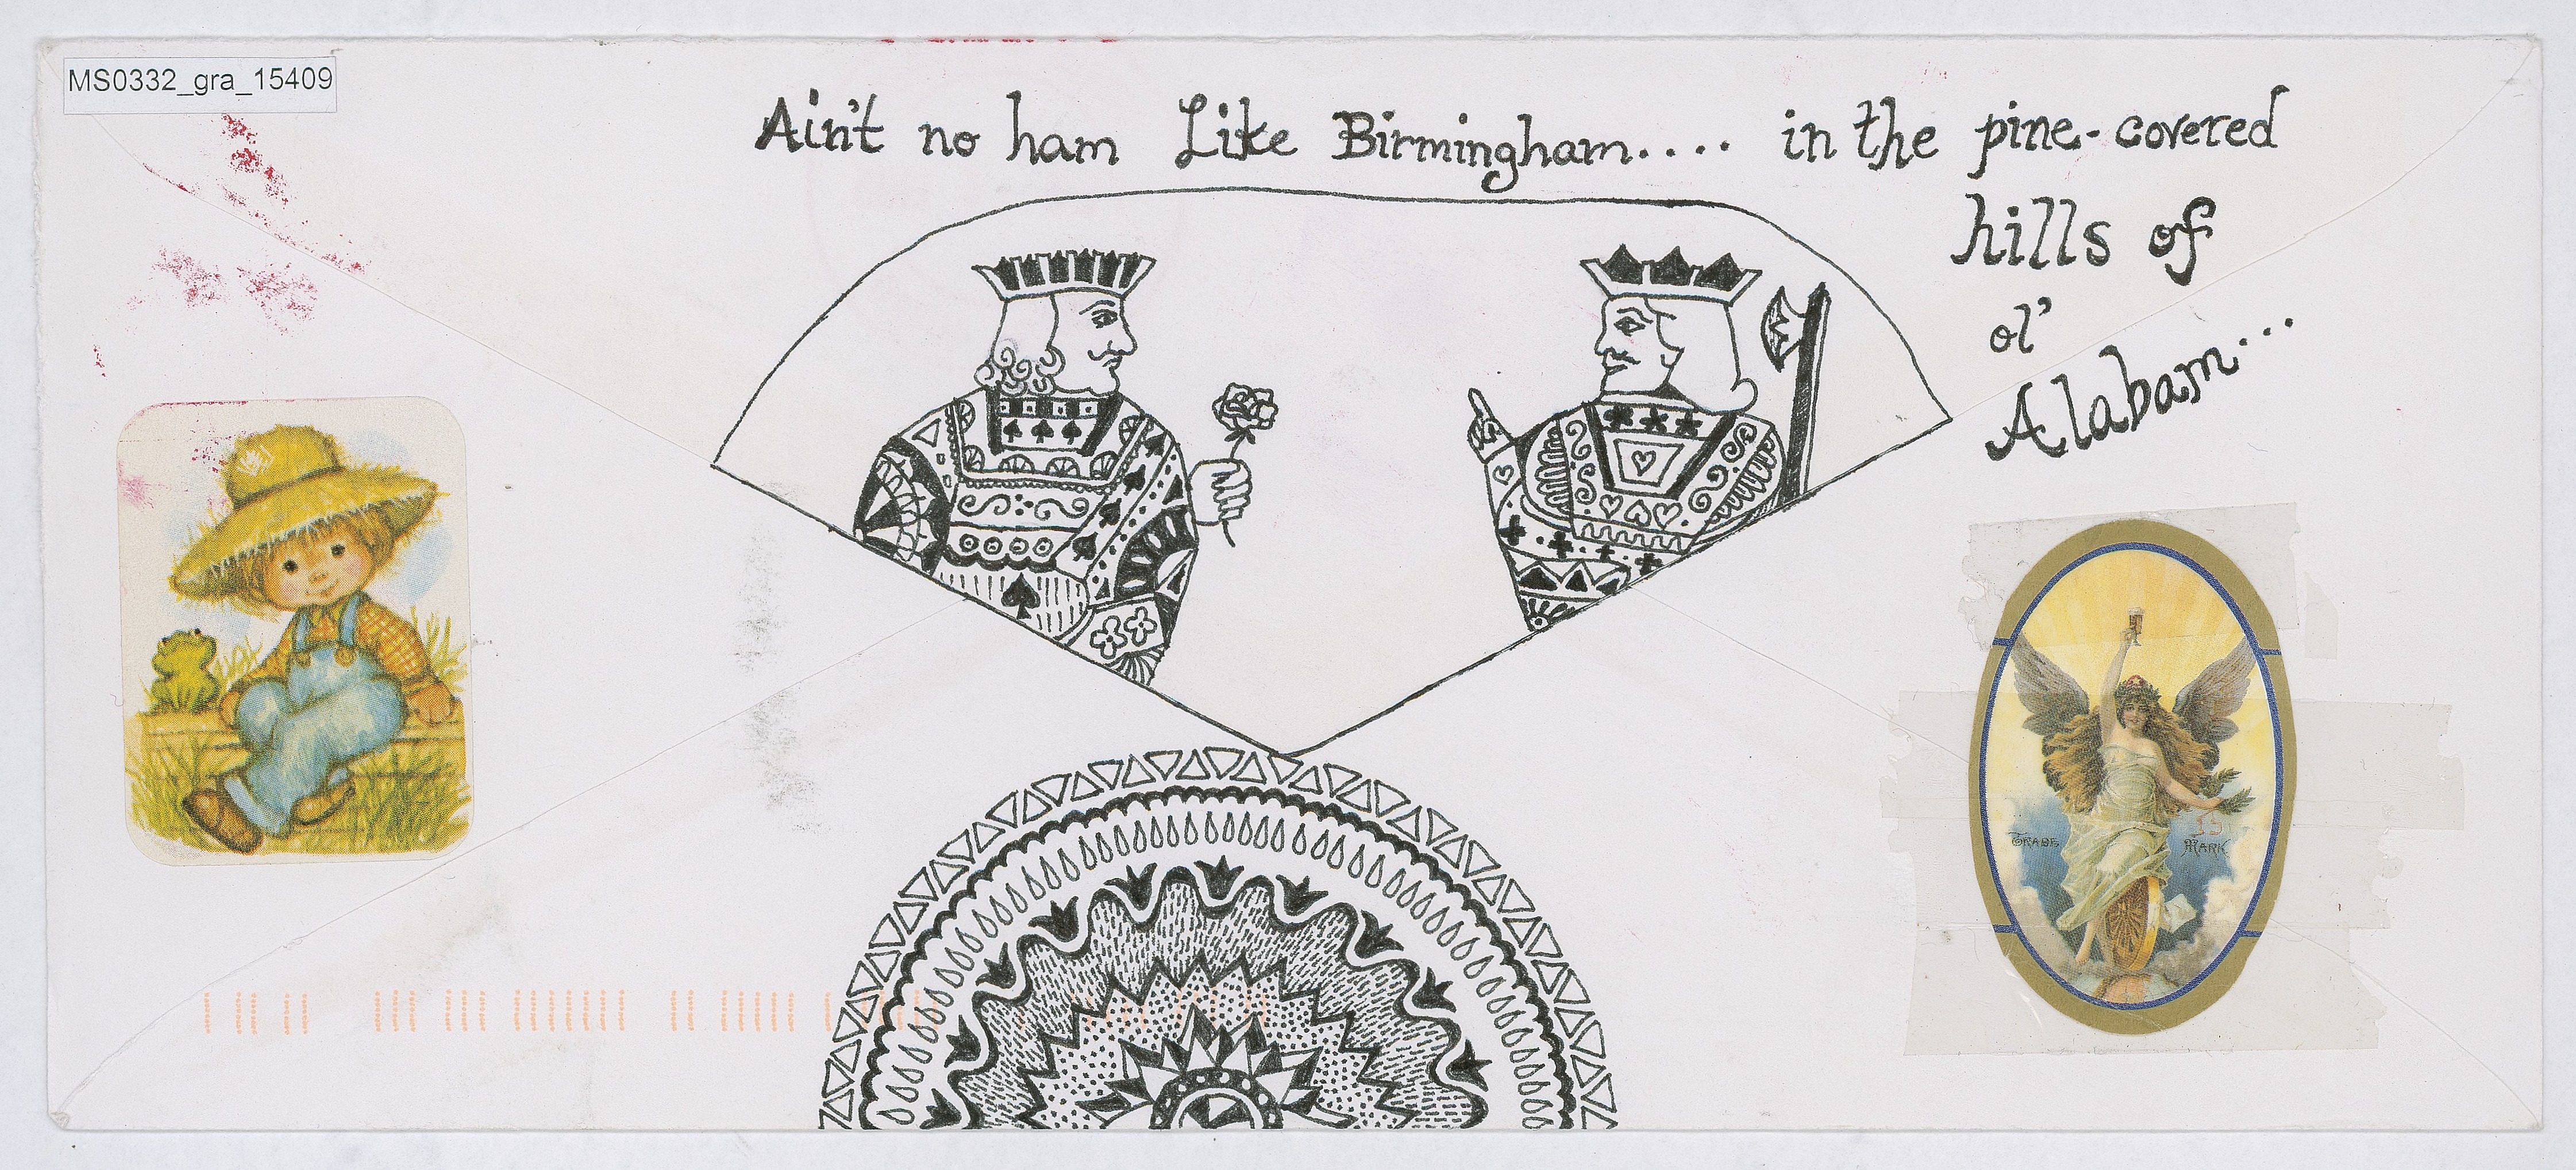 MS0332_gra_15409
Ain't no ham Like Birmingham.... in the pine-covered
hills of
ol'
Alabam...
TRADE MARK